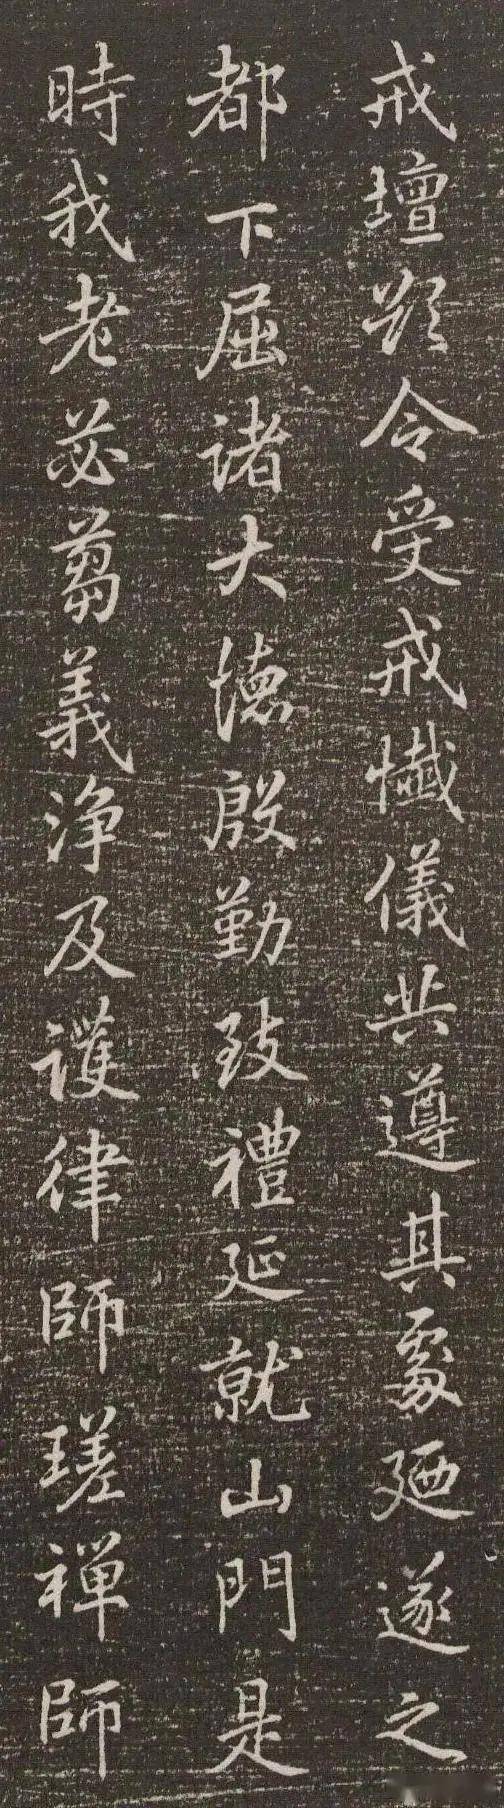 戒壇欵令受戒懴儀共遵其處廼遂之
都下屈諸大德殷勤致禮延就山門是
時我老苾蒭義淨及護律師瑳禪師